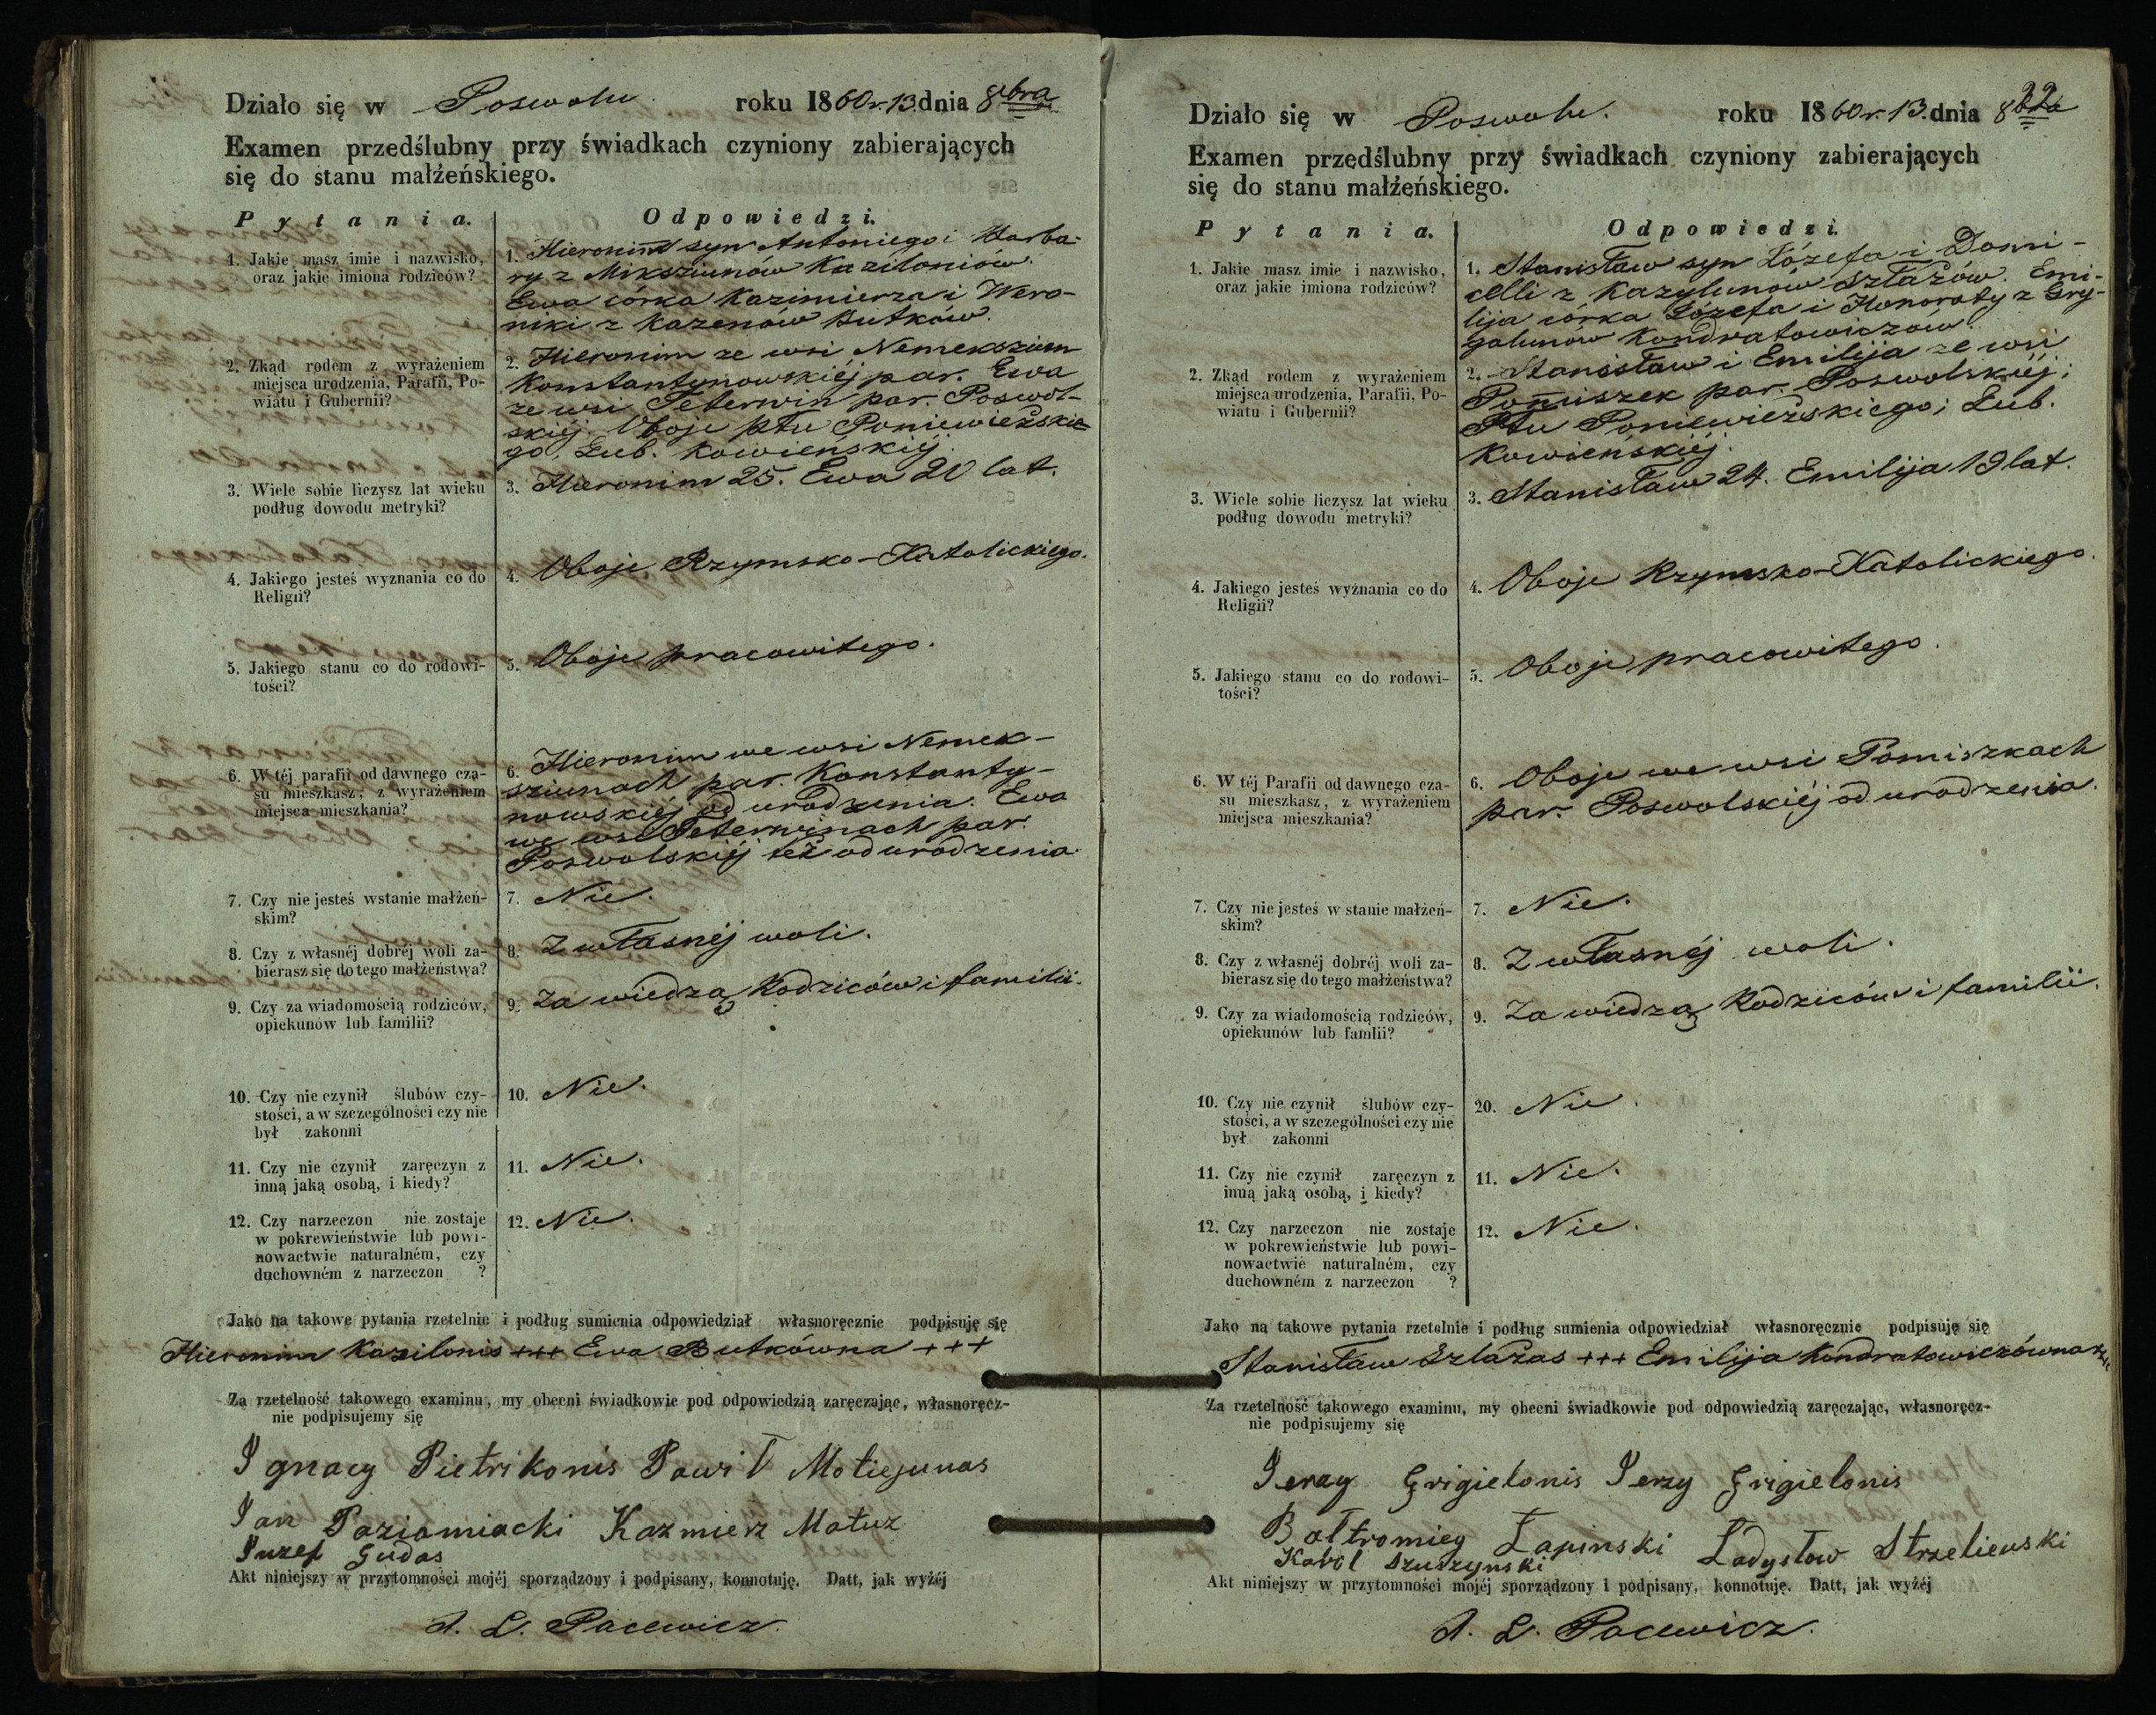 Działo się w Poswolu roku 1860 r. 13. dnia 8bra
Examen przedślubny przy świadkach czyniony zabierających
się do stanu małżeńskiego.
Pytania.
Odpowiedzi.
1. Jakie masz imie i nazwisko,
oraz jakie imiona rodziców?
1. Hieronim syn Antoniego i Barba-
ry z Miksziunów Kaziloniów.
Ewa córka Kazimierza i Wero-
niki z Kazenów Butków.
2. Zkąd rodem z wyrażeniem
miejsca urodzenia, Parafii, Po-
wiatu i Gubernii?
2. Hieronim ze wsi Nemekszium
Konstantynowskiéj par. Ewa
ze wsi Teterwin par. Poswol-
skiéj. Oboje ptu Poniewieżskie-
go, Gub. Kowieńskiéj.
3. Wiele sobie liczysz lat wieku
podług dowodu metryki?
3. Hieronim 25. Ewa 20 lat.
4. Jakiego jesteś wyznania co do
Religii?
4. Oboje Rzymsko-Katolickiego.
5. Jakiego stanu co do rodowi-
tości?
5. Oboje pracowitego.
6. W téj parafii od dawnego cza-
su mieszkasz, z wyrażeniem
miejsca mieszkania?
6. Hieronim we wsi Nemek-
sziunach par. Konstanty-
nowskiéj od urodzenia. Ewa
we wsi Teterwinach par.
Poswolskiéj też od urodzenia.
7. Czy nie jesteś wstanie małżeń-
skim?
7. Nie.
8. Czy z własnéj dobréj woli za-
bierasz się do tego małżeństwa?
8. Z własnéj woli.
9. Czy za wiadomością rodziców,
opiekunów lub familii?
9. Za wiedzą Rodziców i familii.
10. Czy nie czynił ślubów czy-
stości, a w szczególności czy nie
był zakonni
10. Nie.
11. Czy nie czynił zaręczyn z
inną jaką osobą, i kiedy?
11. Nie.
12. Czy narzeczon nie zostaje
w pokrewieństwie lub powi-
nowactwie naturalném, czy
duchowném z narzeczon ?
12. Nie.
Jako na takowe pytania rzetelnie i podług sumienia odpowiedział własnoręcznie podpisuję się
Hieronim Kazilonis +++ Ewa Butkówna +++
Za rzetelność takowego examinu, my obecni świadkowie pod odpowiedzią zaręczając, własnoręcz-
nie podpisujemy się
Ignacy Pietrikonis Pawił Motiejunas
Jan Paziamiacki Kazmierz Matuz
Juzef Gudas
Akt niniejszy w przytomności mojéj sporządzony i podpisany, konnotuję. Datt, jak wyżéj
A. L. Pacewicz.
22
Działo się w Poswolu. roku 1860 r. 13. dnia 8bra
Examen przedślubny przy świadkach czyniony zabierających
się do stanu małżeńskiego.
Pytania.
Odpowiedzi.
1. Jakie masz imie i nazwisko,
oraz jakie imiona rodziców?
1. Stanisław syn Józefa i Domi-
celli z Kazylunów Szlażów. Emi-
lija córka Józefa i Honoraty z Gry-
galunów Kondratowiczów.
2. Zkąd rodem z wyrażeniem
miejsca urodzenia, Parafii, Po-
wiatu i Gubernii?
2. Stanisław i Emilija ze wsi
Pomiszek par. Poswolskiéj;
Ptu Poniewieżskiego; Gub.
Kowieńskiéj.
3. Wiele sobie liczysz lat wieku
podług dowodu metryki?
3. Stanisław 24. Emilija 19 lat.
4. Jakiego jesteś wyznania co do
Religii?
4. Oboje Rzymsko-Katolickiego.
5. Jakiego stanu co do rodowi-
tości?
5. Oboje pracowitego.
6. W téj Parafii od dawnego cza-
su mieszkasz, z wyrażeniem
miejsca mieszkania?
6. Oboje we wsi Pomiszkach
par. Poswolskiéj od urodzenia.
7. Czy nie jesteś w stanie małżeń-
skim?
7. Nie.
8. Czy z własnéj dobréj woli za-
bierasz się do tego małżeństwa?
8. Z własnéj woli.
9. Czy za wiadomością rodziców,
opiekunów lub famlii?
9. Za wiedzą Rodziców i familii.
10. Czy nie czynił ślubów czy-
stości, a w szczególności czy nie
był zakonni
20. Nie.
11. Czy nie czynił zaręczyn z
inną jaką osobą, i kiedy?
11. Nie.
12. Czy narzeczon nie zostaje
w pokrewieństwie lub powi-
nowactwie naturalném, czy
duchowném z narzeczon ?
12. Nie.
Jako na takowe pytania rzetelnie i podług sumienia odpowiedział własnoręcznie podpisuję się
Stanisław Szlażas +++ Emilija Kondratowiczówna +++
Za rzetelność takowego examinu, my obecni świadkowie pod odpowiedzią zaręczając, własnoręcz-
nie podpisujemy się
Jerzy Grigielonis Jerzy Grigielonis
Bałtromiey Łapinski Ładysłow Strzelieuski
Karol Szuszynski
Akt niniejszy w przytomności mojéj sporządzony i podpisany, konnotuję. Datt, jak wyżéj
A. L. Pacewicz.